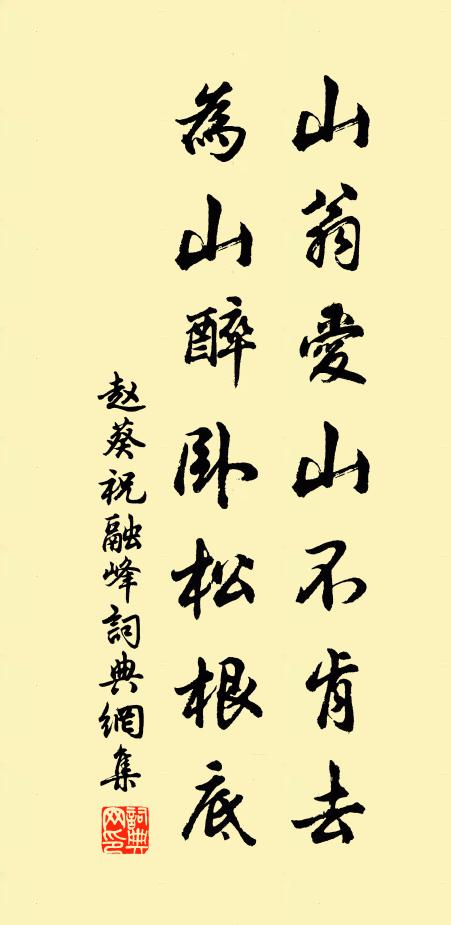 山翁愛山不肯去
為山醉卧松根底
赵葵祝融峰詞典網集
詞典网印